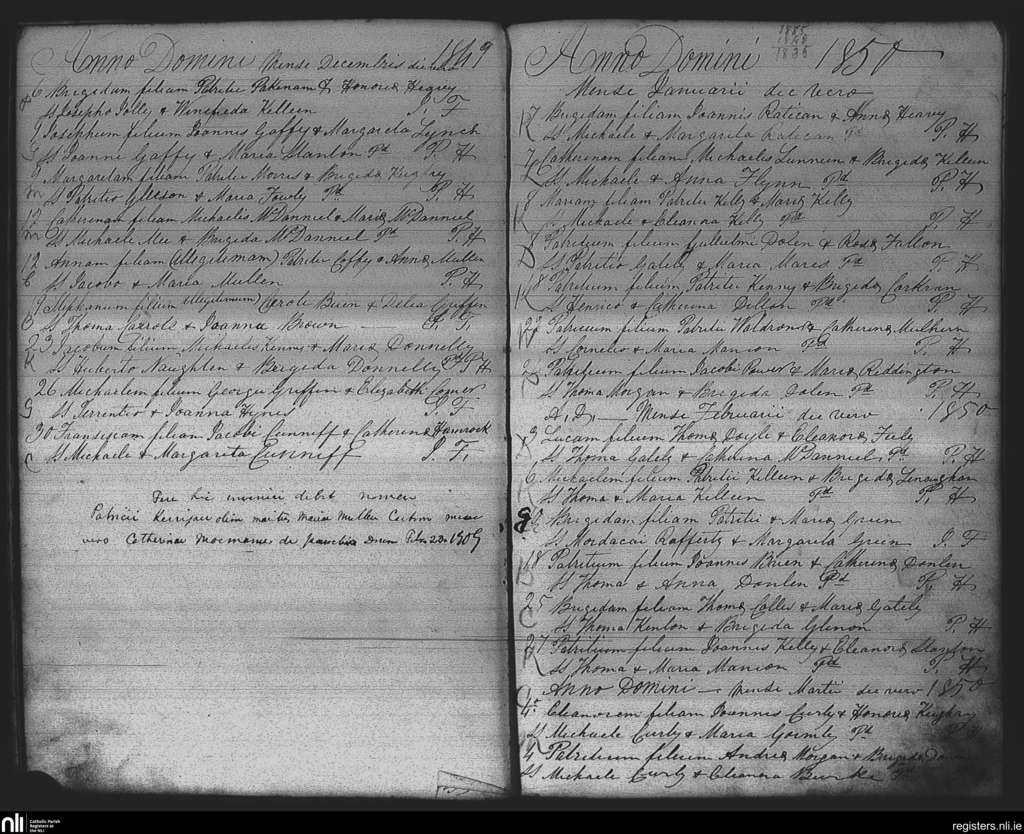 Anno Domini Mense Decembris die vero 1849
6 Brigedam filiam Patritii Pakenam & Honoriæ Hegney
Ss Josepho Jolly & Winefreda Killeen P. F
9 Josephum filium Joannis Gaffy & Margareta Lynch
Ss Joanni Gaffy & Maria Stanton Pd P. H
9 Margaretam filiam Patritii Morris & Brigeda Keighry
Ss Patritio Gleeson & Maria Fowly Pd P. H
12 Catherinam filiam Michaeles McDanniel & Maria McDanniel
Ss Michaele Mee & Brigeda McDanniel Pd P. H
12 Annam filiam (illegitemam) Patritii Coffy & Anna Mullen
Ss Jacobo & Maria Mullen P. H
Stephanum filium Caroli Buen & Delia Griffen
Ss Thoma Carrole & Joanna Brown P. F.
23 Jacobum filium Michaeles Kenny & Maria Donnelly
Ss Huberto Naughten & Brigeda Donnelly Pd P H
26 Michaelem filium George Griffin & Elizabeth Conner
Ss Terrentio & Joanna Hynes P. F
30 Fransiscam filiam Jacobi Cunniff & Catherina Hamrock
Ss Michaele & Margarita Cunniff P. F.
hic debet nomen
Patricii Kerrigan olim Maria Mullen
vero Catherinae de 1909
1885
1850
1835
Anno Domini 1850
Mense Januarii die vero
7 Brigedam filiam Joannis Ratican & Anna Heavy
Ss Michaele & Margarita Ratican Pd P. H
7 Catherinam filiam Michaeles Lunneen & Brigeda Killeen
Ss Michaele & Anna Flynn Pd P. H
8 Mariam filiam Patritii Kelly & Maria Kelly
Ss Michaele & Eleanna Kelly Pd P. H
Patritium filium Gulielmi Dolen & Rosa Fallon
Ss Patritio Gately & Maria Mares Pd P. H
18 Patritium filium Patritii Kenny & Brigeda Corkran
Ss Henrico & Catherina Dillon Pd P. H
22 Patricium filium Patritii Waldron & Catherina Mulhern
Ss Cornelio & Maria Manion Pd P. H
Patritium filium Jacobi Power & Maria Reddington
Ss Thoma Morgan & Brigeda Dolen Pd P. H
A. D. Mense Februarii die vero 1850
3 Lucam filium Thoma Doyle & Eleanora Fuly
Ss Thoma Gately & Catherina McDanniel Pd P. H
6 Michaelem filium Patritii Killeen & Brigeda Lenaughan
Ss Thoma & Maria Killeen Pd P. H
Brigedam filiam Patritii & Maria Green
Ss Mordacai Rafferty & Margarita Green P. F
18 Patritium filium Joannis Brien & Catherina Donlen
Ss Thoma & Anna Donlen Pd P. H
25 Brigedam filiam Thoma Coller & Maria Gately
Ss Thoma Kenton & Brigeda Glenon P. H
27 Patritium filium Joannis Kelly & Eleanora Stanton
Ss Thoma & Maria Manion Pd P. H
Anno Domini Mense Martii die vero 1850
4 Eleanorem filiam Joannis Curly & Honoria Keighry
Ss Michaele Curly & Maria Gormly Pd P. H
4 Patritium filium Andrea Morgan & Brigeda
Ss Michaele Curly & Eleanora Burke Pd
nli Catholic Parish Registers at the NLI
registers.nli.ie